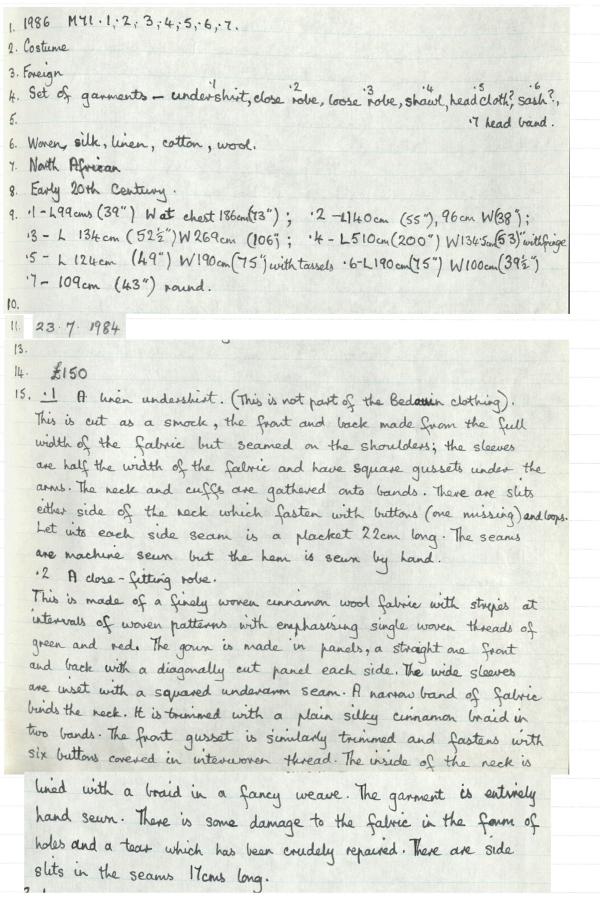 1. 1986 MY1.1; 2; 3; 4; 5; 6; 7.
2. Costume
3. Foreign
4. Set of garments – undershirt, close robe, loose robe, shawl, head cloth? sash?,
·1 ·2 ·3 ·4 ·5 ·6
5. ·7 head band.
6. Woven, silk, linen, cotton, wool.
7. North African
8. Early 20th Century.
9. ·1 – L99cms (39") W at chest 186cm (73"); ·2 – L140cm (55"), 96cm W(38");
·3 – L 134cm (52½") W 269cm (106); ·4 – L510cm (200") W134.5cm (53)" with fringe
·5 – L 124cm (49") W190cm (75") with tassels ·6 – L190cm (75") W100cm (39½")
·7 – 109cm (43") round.
10.
11. 23·7·1984
13.
14. £150
15. ·1 A linen undershirt. (This is not part of the Bedouin clothing).
This is cut as a smock, the front and back made from the full
width of the fabric but seamed on the shoulders; the sleeves
are half the width of the fabric and have square gussets under the
arms. The neck and cuffs are gathered onto bands. There are slits
either side of the neck which fasten with buttons (one missing) and loops.
Let into each side seam is a placket 22cm long. The seams
are machine sewn but the hem is sewn by hand.
·2 A close-fitting robe.
This is made of a finely woven cinnamon wool fabric with stripes at
intervals of woven patterns with emphasising single woven threads of
green and red. The gown is made in panels, a straight one front
and back with a diagonally cut panel each side. The wide sleeves
are inset with a squared underarm seam. A narrow band of fabric
binds the neck. It is trimmed with a plain silky cinnamon braid in
two bands. The front gusset is similarly trimmed and fastens with
six buttons covered in interwoven thread. The inside of the neck is
lined with a braid in a fancy weave. The garment is entirely
hand sewn. There is some damage to the fabric in the form of
holes and a tear which has been crudely repaired. There are side
slits in the seams 17cms long.